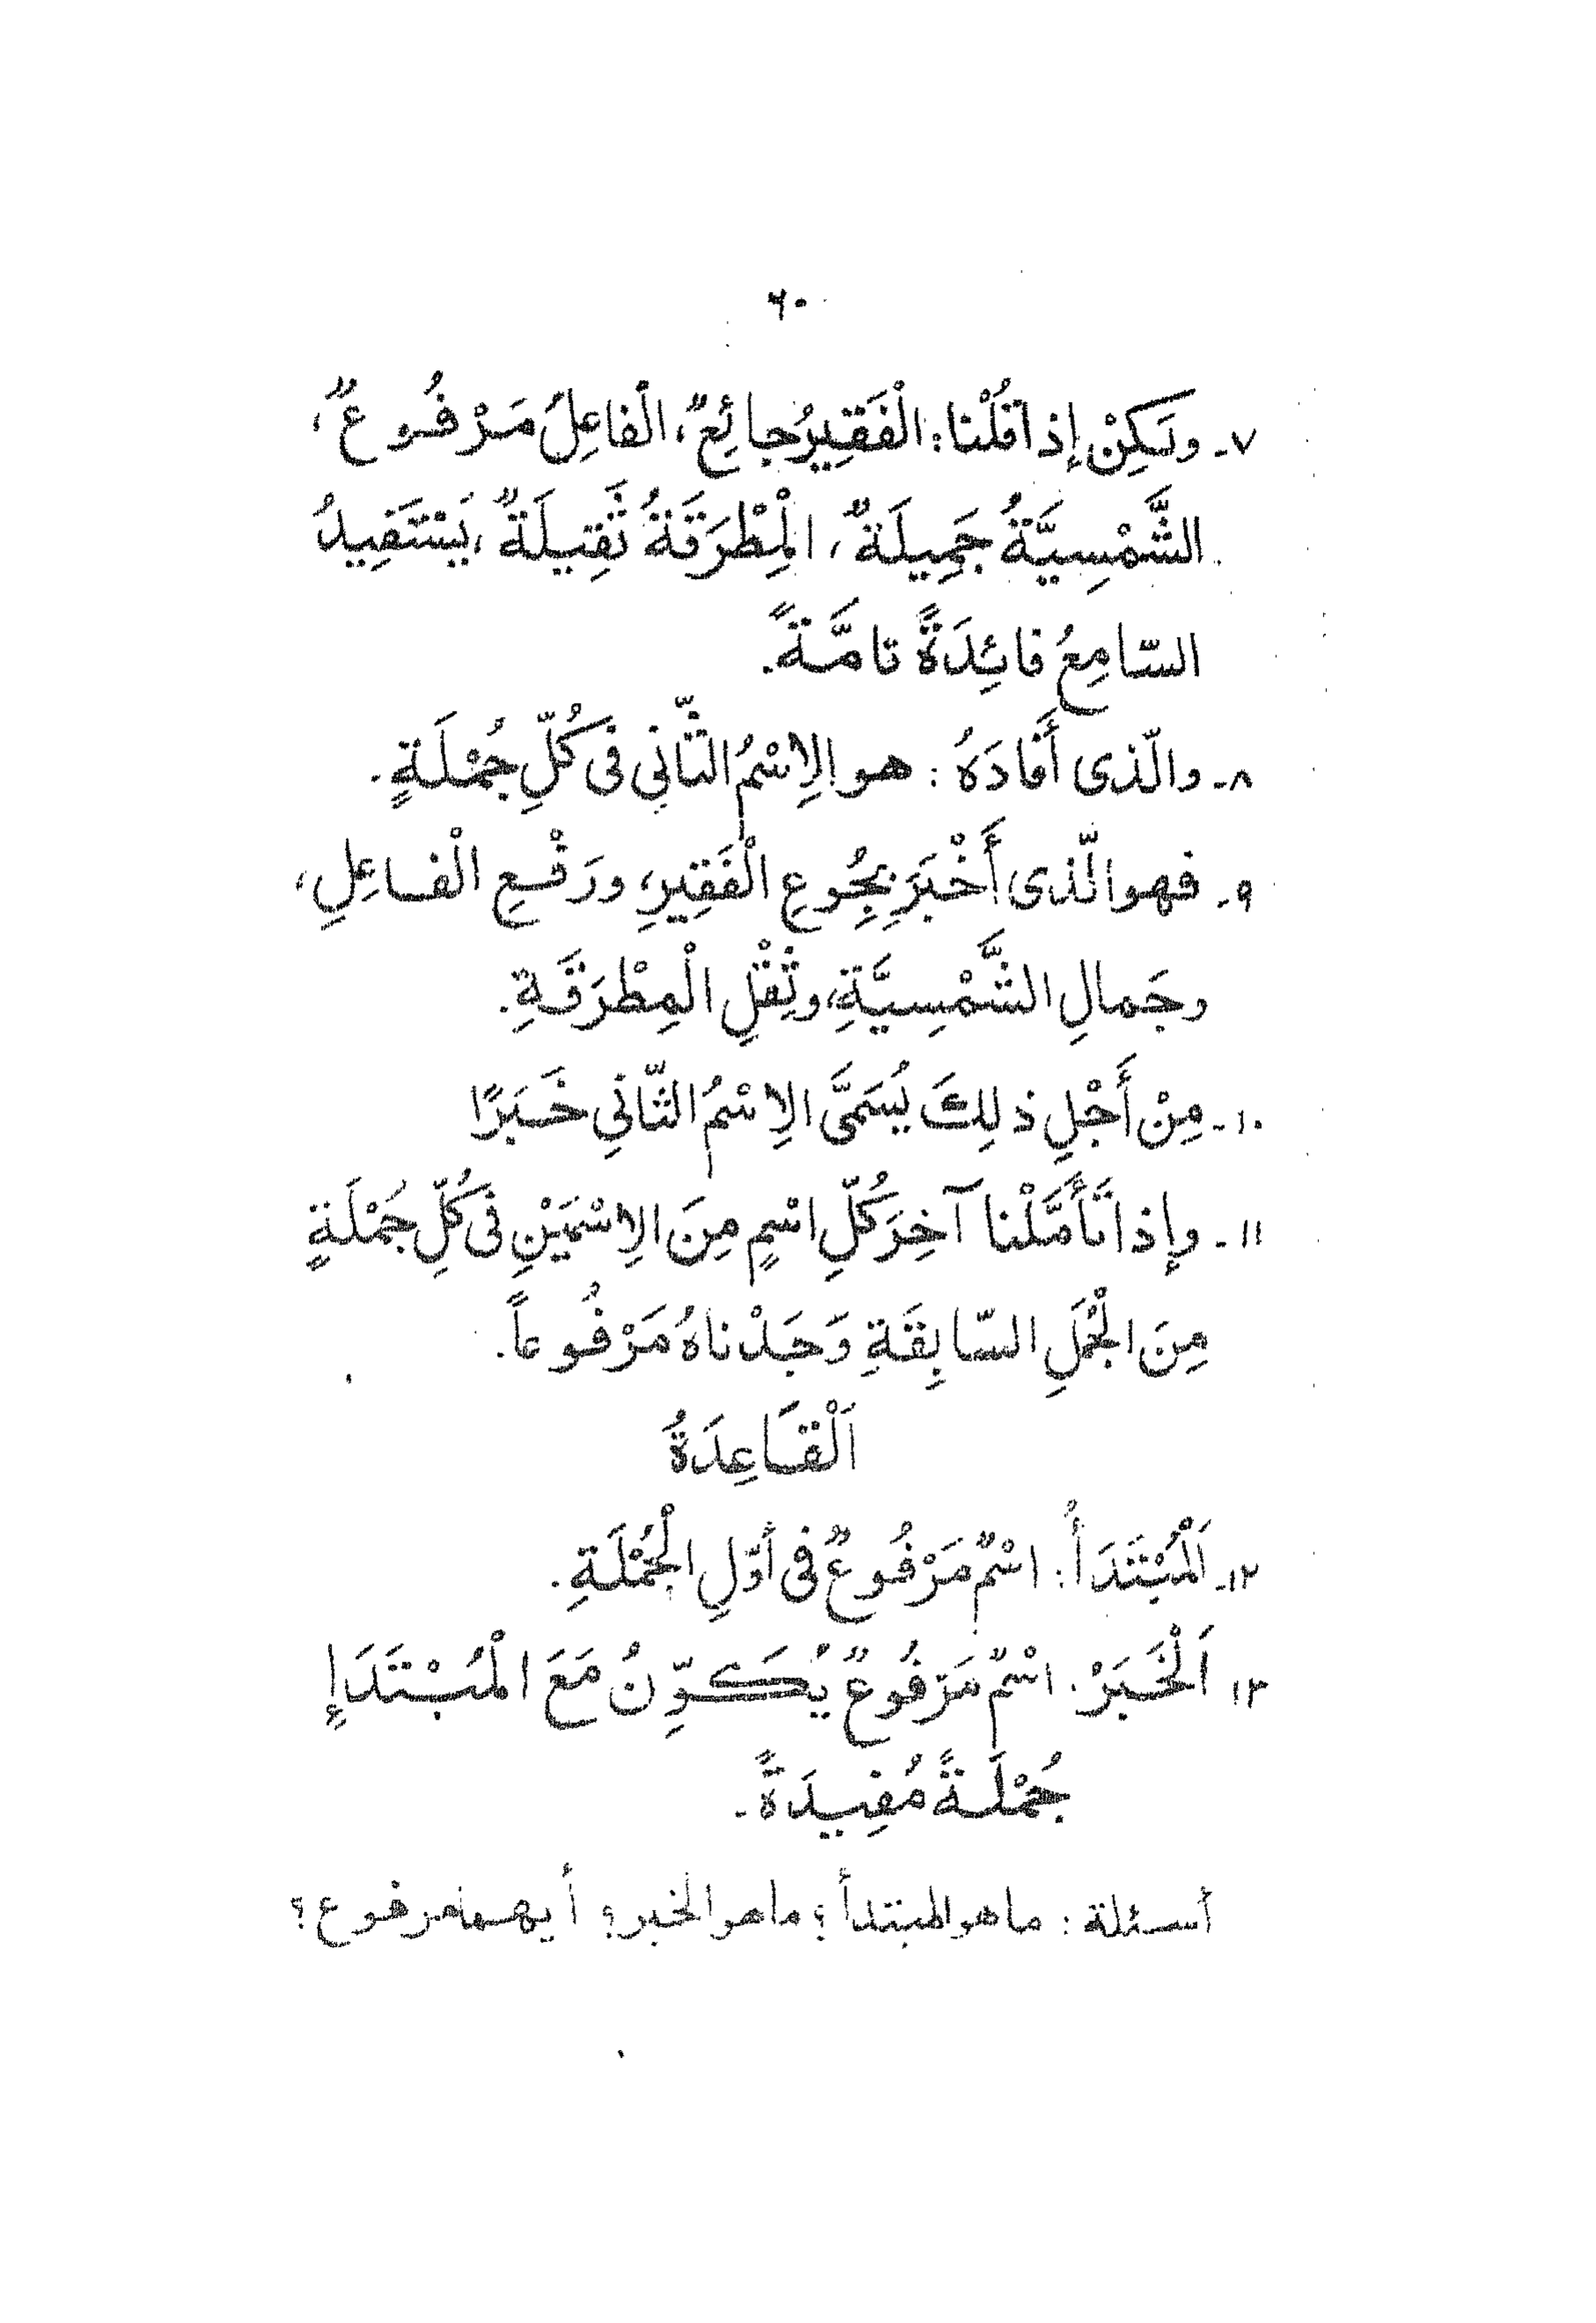 ٦٠
٧- ولَكِنْ إذا قُلْنا: الْفَقِيرُ جائِعٌ، الْفاعِلُ مَرْفُوعٌ،
الشَّمْسِيَّةُ جَمِيلَةٌ، الْمِطْرَقَةُ ثَقِيلَةٌ، يَسْتَفِيدُ
السّامِعُ فائِدَةً تامَّةً.
٨- والّذى أَفادَهُ : هو الِاسْمُ الثّانِي فى كُلِّ جُمْلَةٍ.
٩- فهو الّذى أَخْبَرَ بِجُوعِ الْفَقِيرِ، ورَفْعِ الْفاعِلِ،
وجَمالِ الشَّمْسِيَّةِ، وثِقْلِ الْمِطْرَقَةِ.
١٠- مِنْ أَجْلِ ذلِكَ يُسَمَّى الِاسْمُ الثّانِي خَبَرًا
١١- وإذا تَأَمَّلْنا آخِرَ كُلِّ اسْمٍ مِنَ الِاسْمَيْنِ فى كُلِّ جُمْلَةٍ
مِنَ الْجُمَلِ السّابِقَةِ وَجَدْناهُ مَرْفُوعاً.
اَلْقَاعِدَةُ
١٢- اَلْمُبْتَدَأُ : اسْمٌ مَرْفُوعٌ فى أَوّلِ الْجُمْلَةِ.
١٣ اَلْخَبَرْ. اسْمٌ مَرْفُوعٌ يُكَوِّنُ مَعَ الْمُبْتَدَإِ
جُمْلَةً مُفِيدَةً -
أسئلة : ما هو المبتدأ ؟ ما هو الخبر؟ أيهما مرفوع ؟